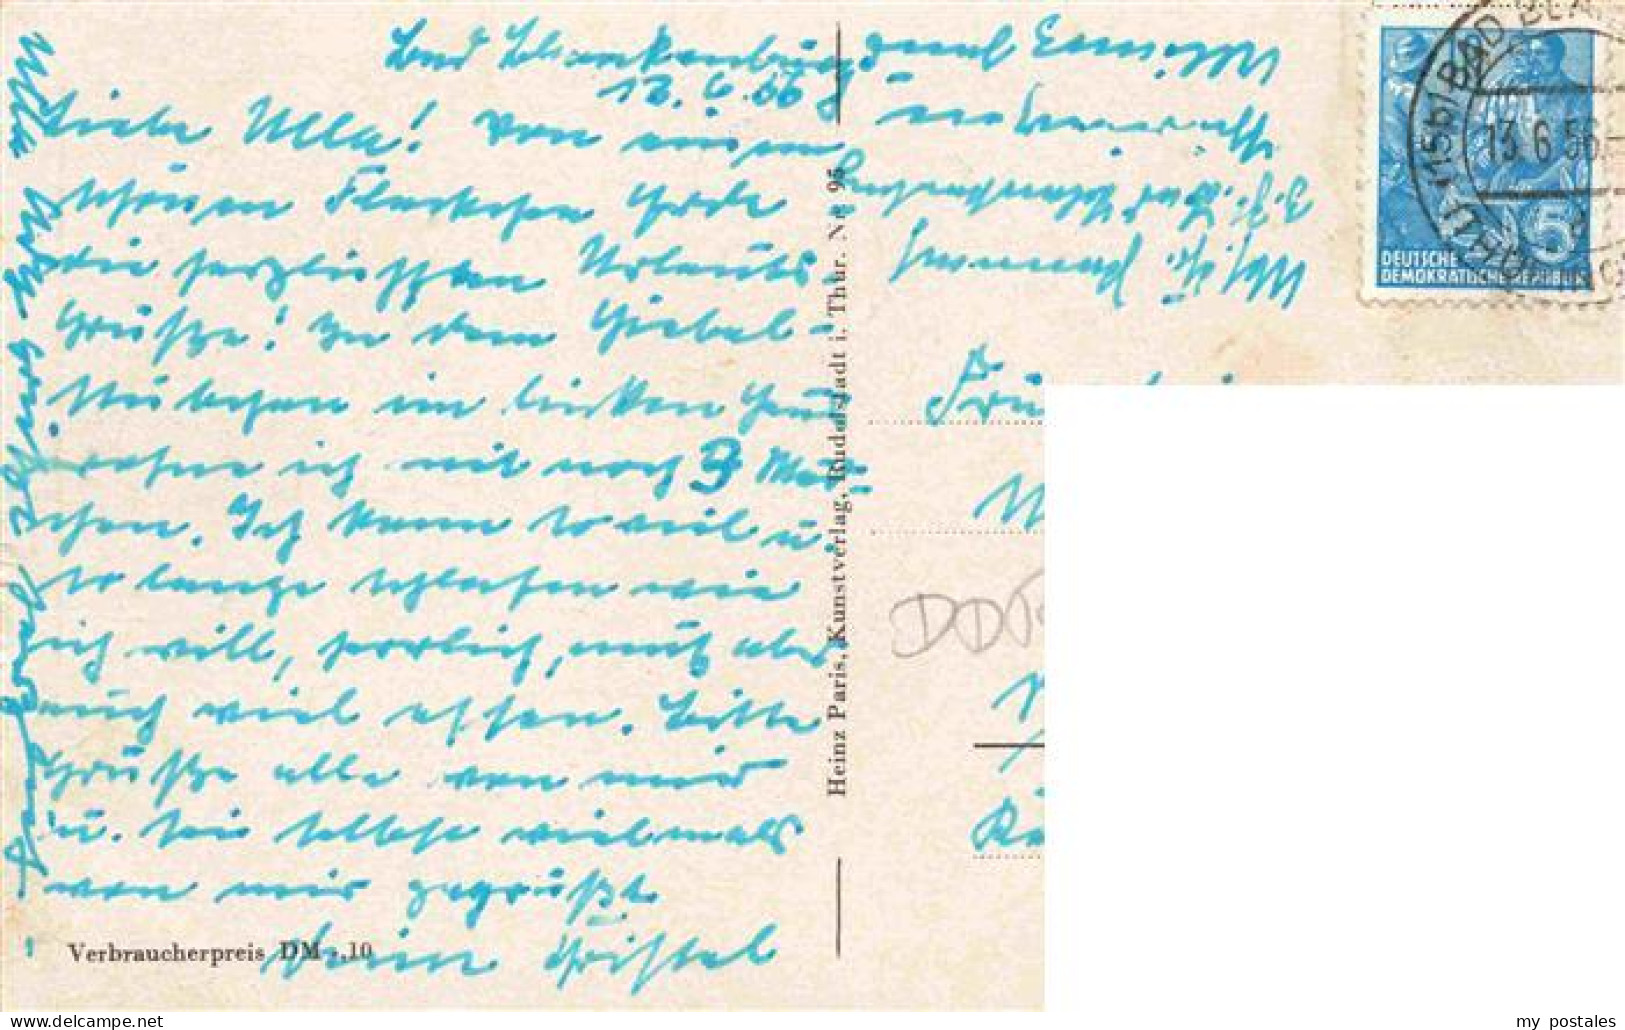 Bad Blankenburg
12.6.56
Liebe Ulla! Von einem
schönen Fleckchen Erde
die herzlichsten Urlaubs
Grüße! In dem Giebel-
stübchen im linken Haus
wohne ich mit noch 3 Mäd-
chen. Ich kann so viel u.
so lange schlafen wie
ich will, herrlich, muß aber
auch viel essen. Bitte
Grüße alle von mir
u. sei selbst vielmals
von mir gegrüßt
Deine Christel
Verbraucherpreis DM -,10
Heinz Paris, Kunstverlag, Rudolstadt i. Thür. Nr. 95
z. Zt. Bad Blankenburg
BAD BLAN
(15b)
13.6.56
5
DEUTSCHE
DEMOKRATISCHE REPUBLIK
DDR
my postales